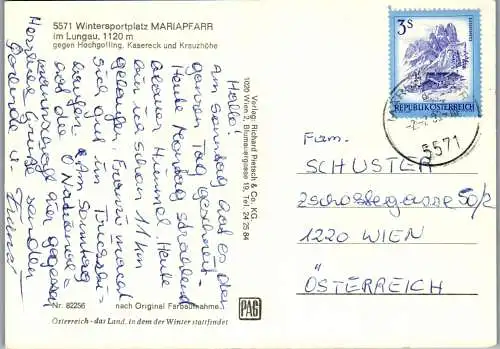 5571 Wintersportplatz MARIAPFARR
im Lungau, 1120 m
gegen Hochgolling, Kasereck und Kreuzhöhe
Hallo!
Am Sonntag hat es den
ganzen Tag geschneit -
Heute Montag strahlend
blauer Himmel. Heute
bin ich schon 11 km
gelaufen. Franz macht
sich gut im
Am Sonntag
auf die
Mannschaft
Herzliche Grüße senden
u. Franz
Nr. 82256
nach Original Farbaufnahme
Österreich - das Land, in dem der Winter stattfindet
Verlag: Richard Pietsch & Co. KG.
1020 Wien 2, Blumauergasse 19, Tel. 24 25 84
PAG
3 S
REPUBLIK ÖSTERREICH
5571
Fam.
SCHUSTER
Zschokkegasse 50/2
1220 WIEN
ÖSTERREICH